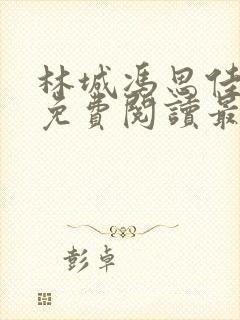 林城馮思佳
免費閱讀最
彭卓